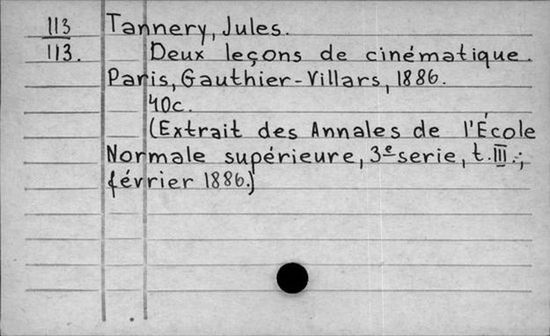 113 Tannery, Jules.
113. Deux leçons de cinématique.
Paris, Gauthier-Villars, 1886.
40c.
(Extrait des Annales de l'École
Normale supérieure, 3e serie, t. III.;
février 1886.)